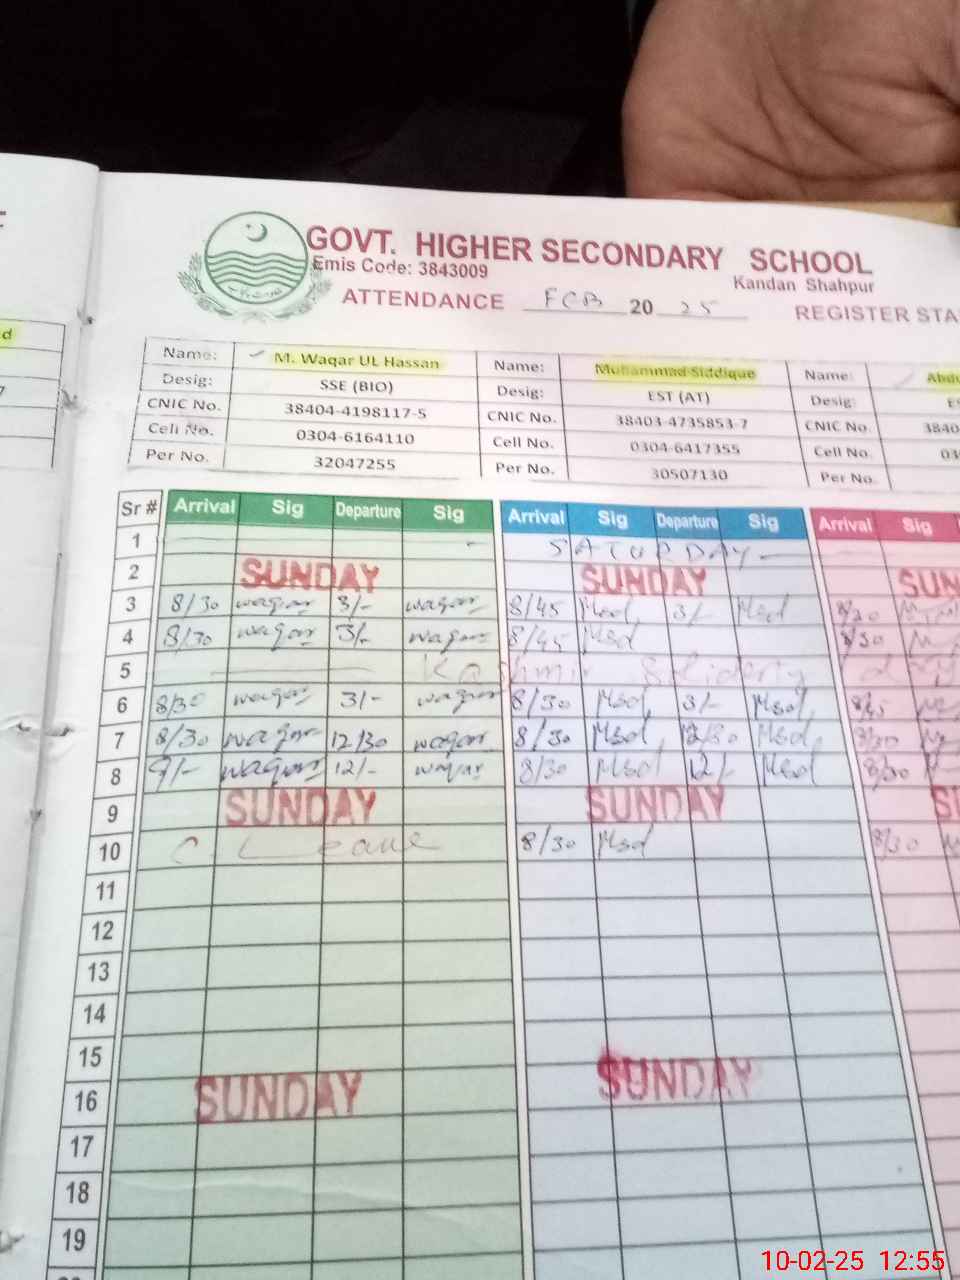 GOVT. HIGHER SECONDARY SCHOOL
Emis Code: 3843009
Kandan Shahpur
ATTENDANCE FEB 20 25 REGISTER STA
d
7
Name: M. Waqar UL Hassan Name: Muhammad Siddique Name: Abdu
Desig: SSE (BIO) Desig: EST (AT) Desig: ES
CNIC No. 38404-4198117-5 CNIC No. 38403-4735853-7 CNIC No. 3840
Cell No. 0304-6164110 Cell No. 0304-6417355 Cell No. 03
Per No. 32047255 Per No. 30507130 Per No.
Sr # Arrival Sig Departure Sig Arrival Sig Departure Sig Arrival Sig
1 SATURDAY
2 SUNDAY SUNDAY SUN
3 8/30 waqar 3/- waqar 8/45 Msd 3/- Msd 8/30
4 8/30 waqar 3/- waqar 8/45 Msd 8/30
5 Kashmir Soliderty
6 8/30 waqar 3/- waqar 8/30 Msd 3/- Msd
7 8/30 waqar 12/30 waqar 8/30 Msd 12/30 Msd 8/30
8 9/- waqar 12/- waqar 8/30 Msd 12/- Msd 8/30
9 SUNDAY SUNDAY S
10 C. Leave 8/30 Msd 8/30
11
12
13
14
15
16 SUNDAY SUNDAY
17
18
19
10-02-25 12:55